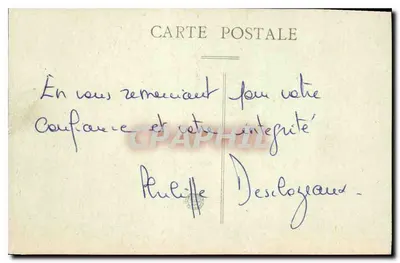 CARTE POSTALE
En vous remerciant pour votre
confiance et votre integrité
CPAPHIL
Philippe Desclozeaux.